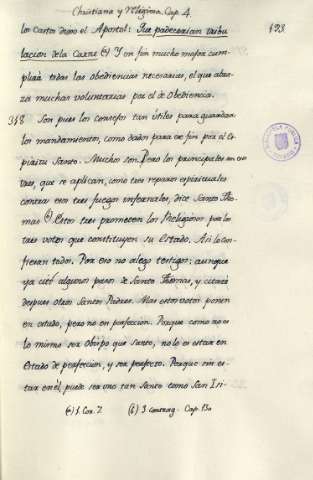 Christiana y Religiosa. Cap. 4.
193
los Castos dixo el Apostol: Que padecerian tribu
lacion de la Carne (a) Y en fin mucho mejor cum
plirà todas las obediencias necesarias, el que abra
za muchas voluntarias por el de Obediencia.
318 Son pues los consejos tan ùtiles para guardar
los mandamientos, como dados para ese fin por el Es
piritu Santo. Muchos son. Pero los principales son
tres, que se aplican, como tres reparos espirituales
contra esos tres fuegos infernales, dice Santo Tho
mas (b) Estos tres prometen los Religiosos por los
tres votos que constituyen su Estado. Asi lo con
fiesan todos. Por eso no alego testigos; aunque
ya citè algunos pasos de Santo Thomas, y citarè
despues otros Santos Padres. Mas estos votos ponen
en estado, pero no en perfeccion. Porque como no es
lo mismo ser Obispo que Santo, no lo es estar en
Estado de perfeccion, y ser perfecto. Porque sin es
tar en èl, puede ser uno tan Santo como San Isi-
(a) 1. Cor. 7. (b) 3. contrag. Cap. 130